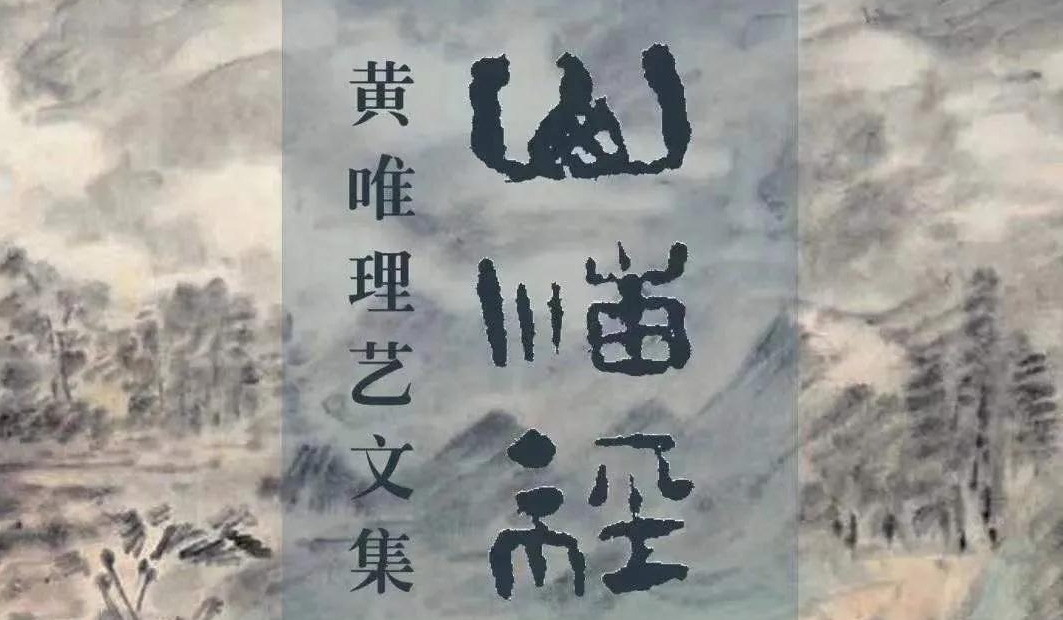 山海經
黄唯理艺文集